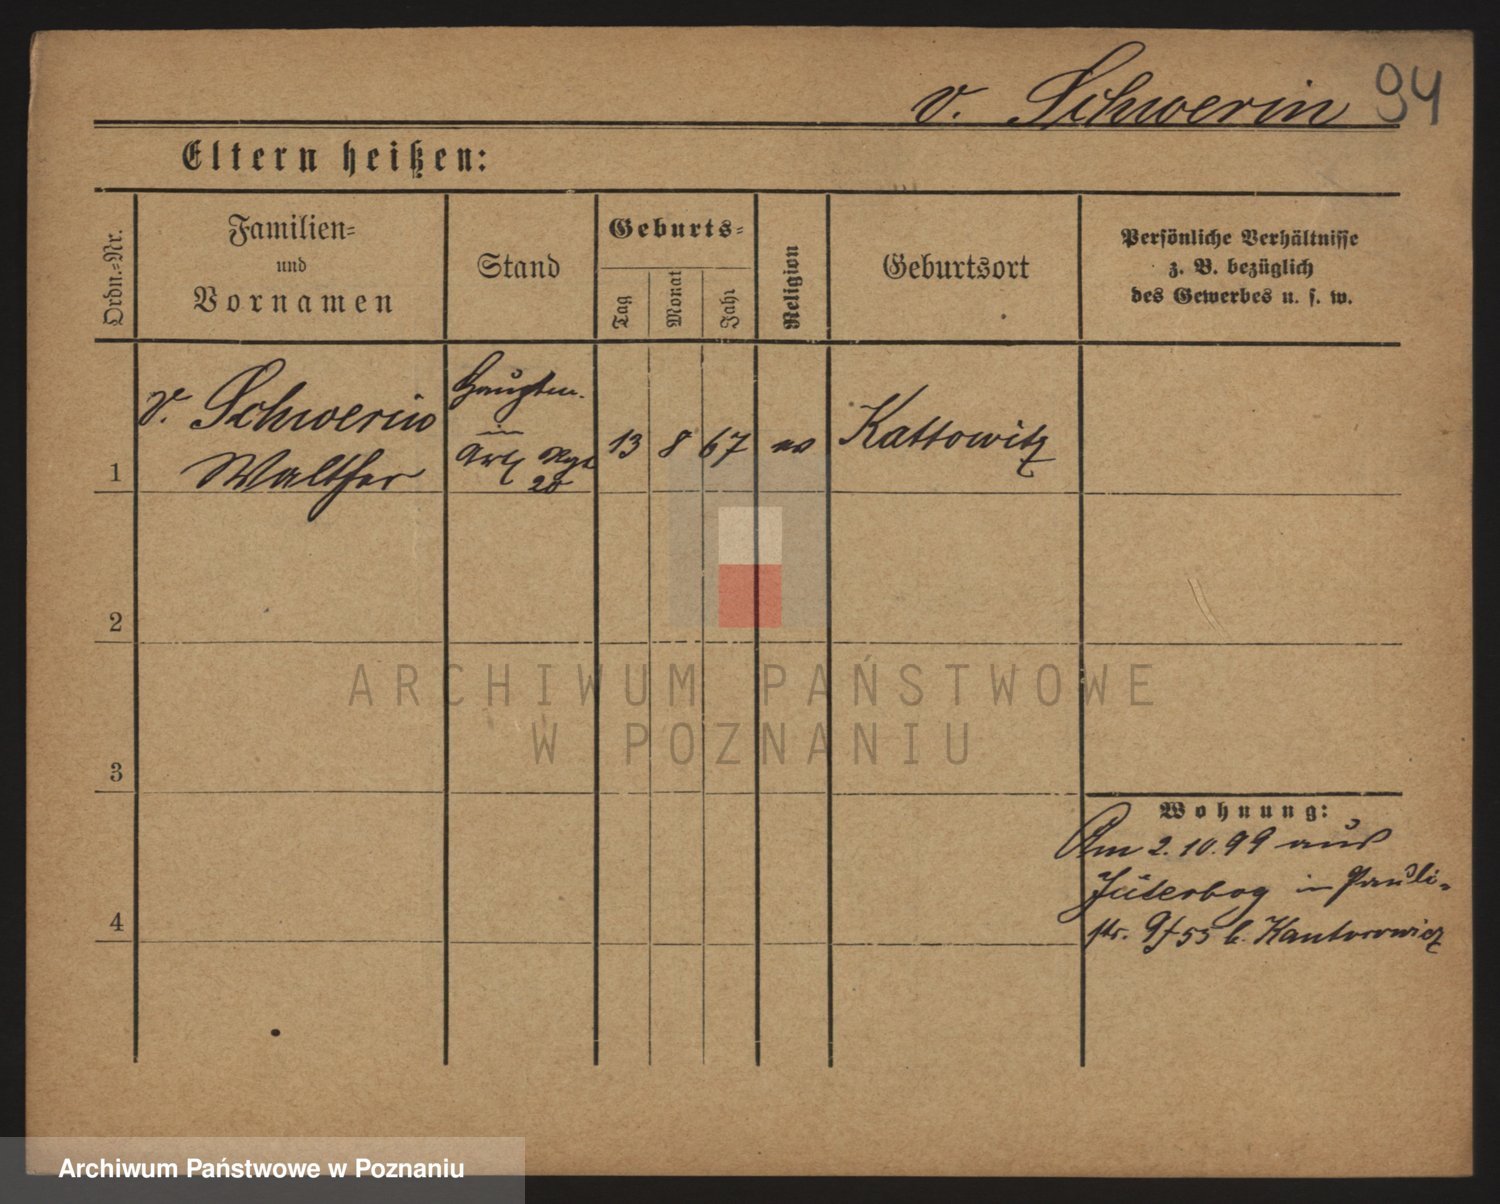 v. Schwerin 94
Eltern heißen:
Ordn.=Nr.
Familien=
und
Vornamen
Stand
Geburts=
Tag
Monat
Jahr
Religion
Geburtsort
Persönliche Verhältnisse
z. B. bezüglich
des Gewerbes u. s. w.
1
v. Schwerin
Walther
Hauptm.
im
Artl Rgt
20
13 8 67 ev Kattowitz
2
3
4
Wohnung:
Am 2.10.99 aus
Jüterbog in Pauli=
str. 9/ 55 b. Kantorowicz
ARCHIWUM PAŃSTWOWE
W POZNANIU
Archiwum Państwowe w Poznaniu